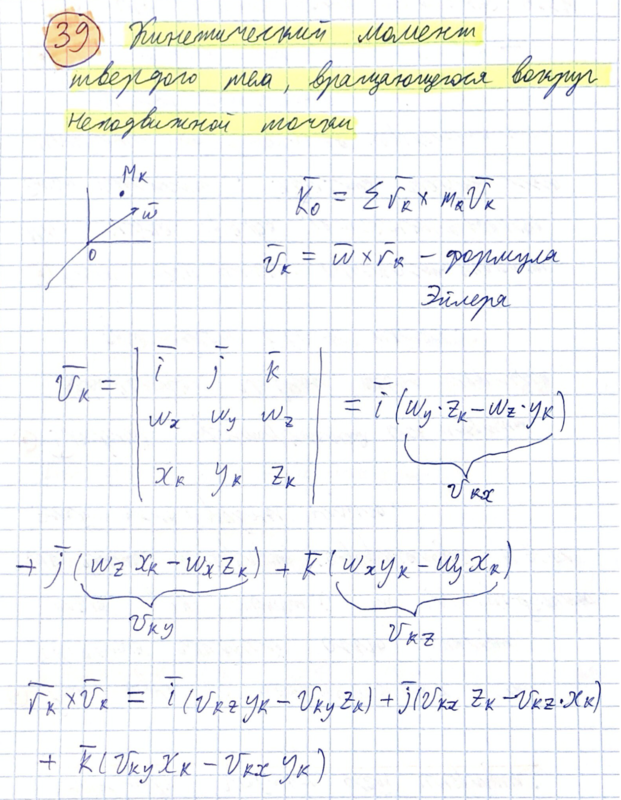 39 Кинетический момент
твердого тела, вращающегося вокруг
неподвижной точки
Mк
ω̅
O
K̅₀ = Σ r̅ₖ × mₖ V̅ₖ
v̅ₖ = ω̅ × r̅ₖ – формула
Эйлера
V̅ₖ = | i̅ j̅ k̅ |
| ωx ωy ωz |
| xₖ yₖ zₖ |
= i̅ (ωy · zₖ – ωz · yₖ)
vкx
+ j̅ (ωz xₖ – ωx zₖ) + k̅ (ωx yₖ – ωy xₖ)
vкy vкz
r̅ₖ × v̅ₖ = i̅ (vкz yₖ – vкy zₖ) + j̅ (vкx zₖ – vкz · xₖ)
+ k̅ (vкy xₖ – vкx yₖ)